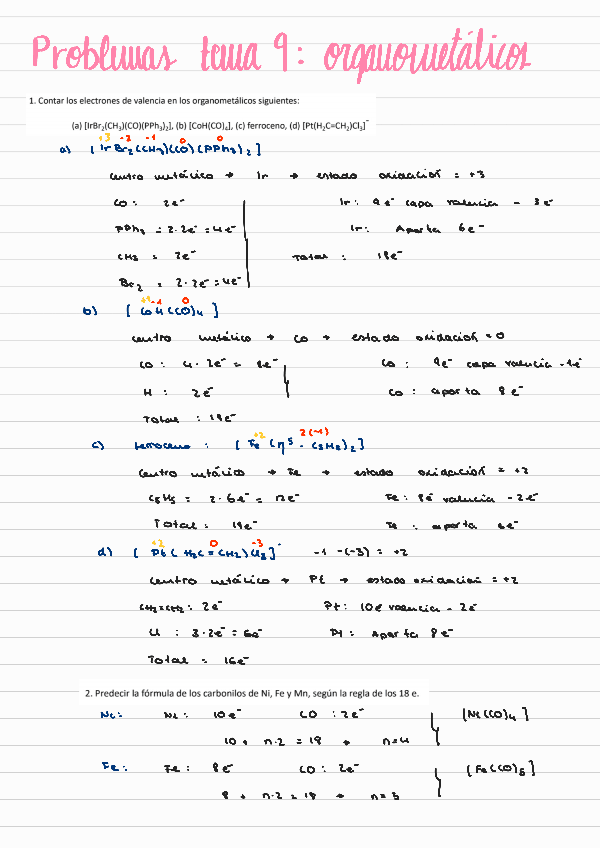 Problemas tema 9: organometálicos
1. Contar los electrones de valencia en los organometálicos siguientes:
(a) [IrBr₂(CH₃)(CO)(PPh₃)₂], (b) [CoH(CO)₄], (c) ferroceno, (d) [Pt(H₂C=CH₂)Cl₃]⁻
+3 -2 -1 0 0
a) [IrBr₂(CH₃)(CO)(PPh₃)₂]
centro metálico → Ir → estado oxidación = +3
CO : 2e⁻ Ir : 9e⁻ capa valencia - 3e⁻
PPh₃ = 2·2e⁻ = 4e⁻ Ir: Aporta 6e⁻
CH₃ = 2e⁻ Total : 18e⁻
Br₂ = 2·2e⁻ = 4e⁻
+1 -1 0
b) [CoH(CO)₄]
centro metálico → Co → estado oxidación = 0
CO : 4·2e⁻ = 8e⁻ Co : 9e⁻ capa valencia -1e⁻
H : 2e⁻ Co : aporta 8e⁻
Total : 18e⁻
+2 2(-1)
c) ferroceno : [Fe(η⁵-C₅H₅)₂]
centro metálico → Fe → estado oxidación = +2
C₅H₅ = 2·6e⁻ = 12e⁻ Fe : 8e⁻ valencia - 2e⁻
Total : 18e⁻ Fe : aporta 6e⁻
+2 0 -3
d) [Pt(H₂C=CH₂)Cl₃]⁻ -1 -(-3) = +2
centro metálico → Pt → estado oxidación = +2
CH₂=CH₂ : 2e⁻ Pt : 10e⁻ valencia - 2e⁻
Cl : 3·2e⁻ = 6e⁻ Pt : Aporta 8e⁻
Total = 16e⁻
2. Predecir la fórmula de los carbonilos de Ni, Fe y Mn, según la regla de los 18 e.
Ni: Ni : 10e⁻ CO : 2e⁻ [Ni(CO)₄]
10 + n·2 = 18 → n=4
Fe: Fe : 8e⁻ CO : 2e⁻ [Fe(CO)₅]
8 + n·2 = 18 → n=5